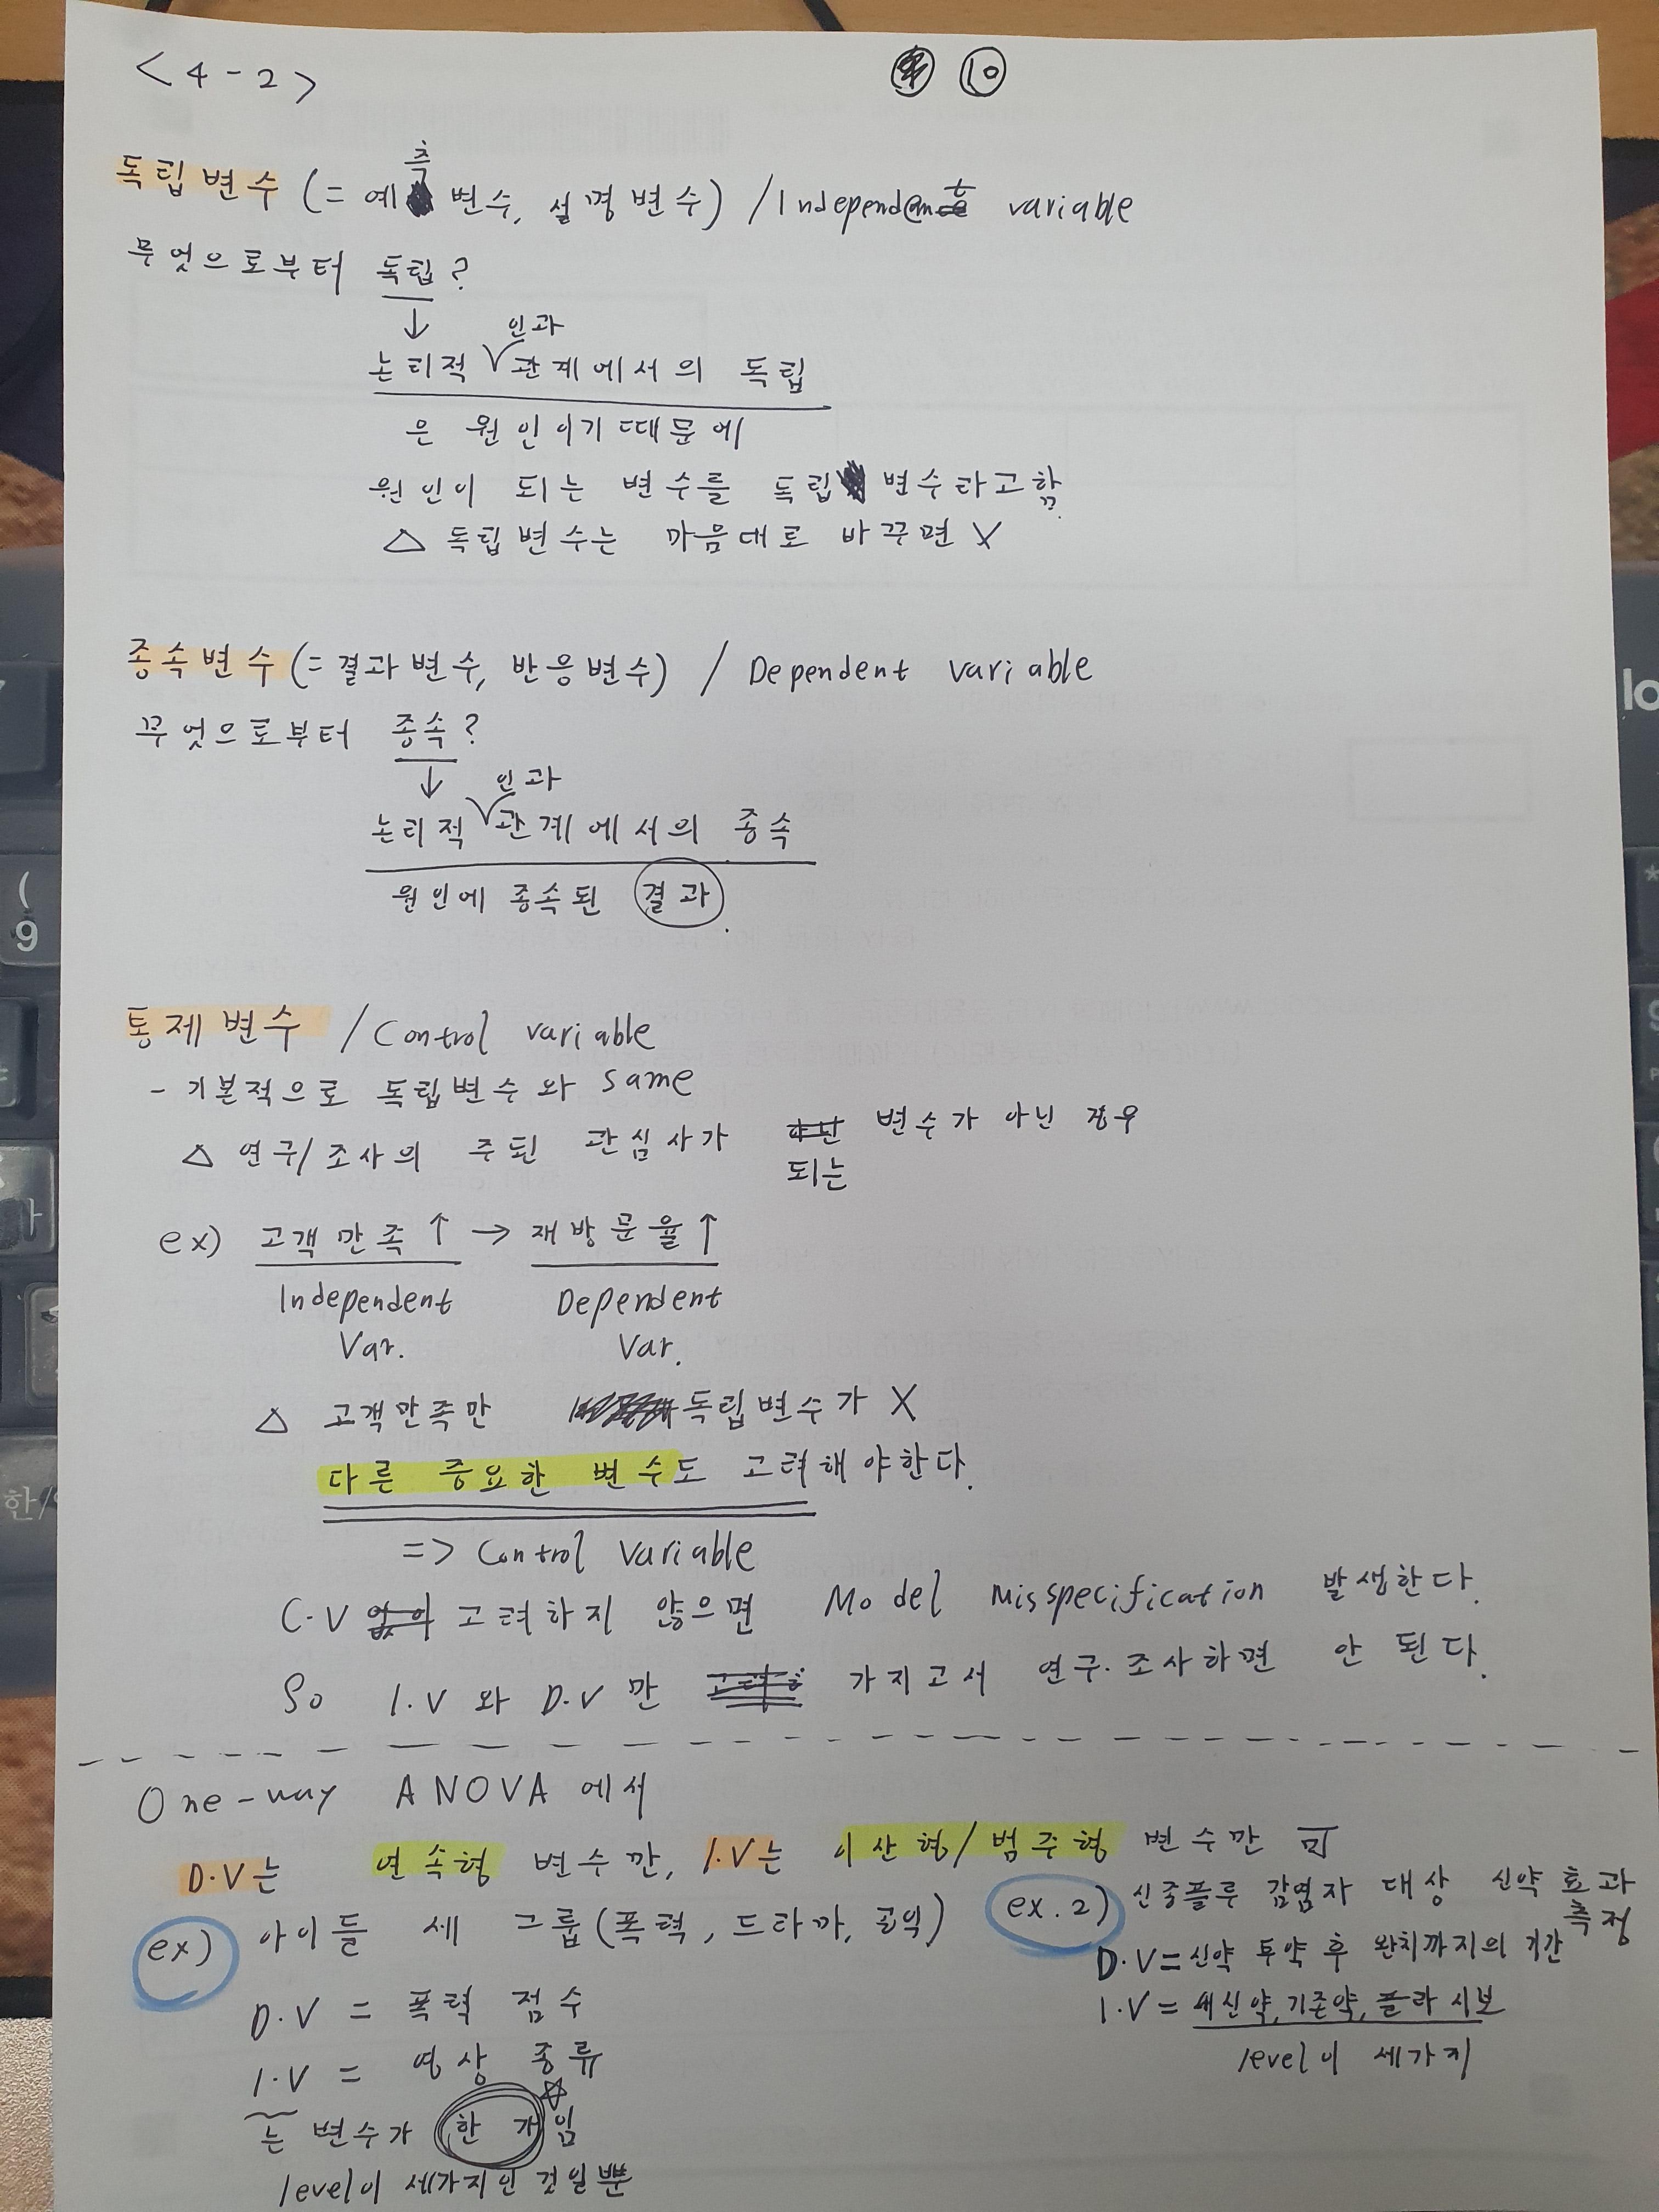 <4-2> 10
독립변수 (= 예측변수, 설명변수) / Independent variable
무엇으로부터 독립?
↓ 인과
논리적 ∨ 관계에서의 독립
은 원인이기 때문에
원인이 되는 변수를 독립변수라고 함.
△ 독립변수는 마음대로 바꾸면 X
종속변수 (= 결과변수, 반응변수) / Dependent variable
무엇으로부터 종속?
↓ 인과
논리적 ∨ 관계에서의 종속
원인에 종속된 결과.
통제변수 / Control variable
- 기본적으로 독립변수와 same
△ 연구/조사의 주된 관심사가 되는 변수가 아닌 경우
ex) 고객만족↑ → 재방문율↑
Independent Var. Dependent Var.
△ 고객만족만 독립변수가 X
다른 중요한 변수도 고려해야한다.
=> Control Variable
C.V 고려하지 않으면 Model Misspecification 발생한다.
So I.V와 D.V만 가지고서 연구·조사하면 안 된다.
One-way ANOVA에서
D.V는 연속형 변수만, I.V는 이산형/범주형 변수만 可
ex) 아이들 세 그룹(폭력, 드라마, 공익)
D.V = 폭력 점수
I.V = 영상 종류
는 변수가 한 개임
level이 세가지인 것일뿐
ex.2) 신종플루 감염자 대상 신약 효과 측정
D.V = 신약 투약 후 완치까지의 기간
I.V = 신약, 기존약, 플라시보
level이 세가지
(
9
한/
lo
*
9